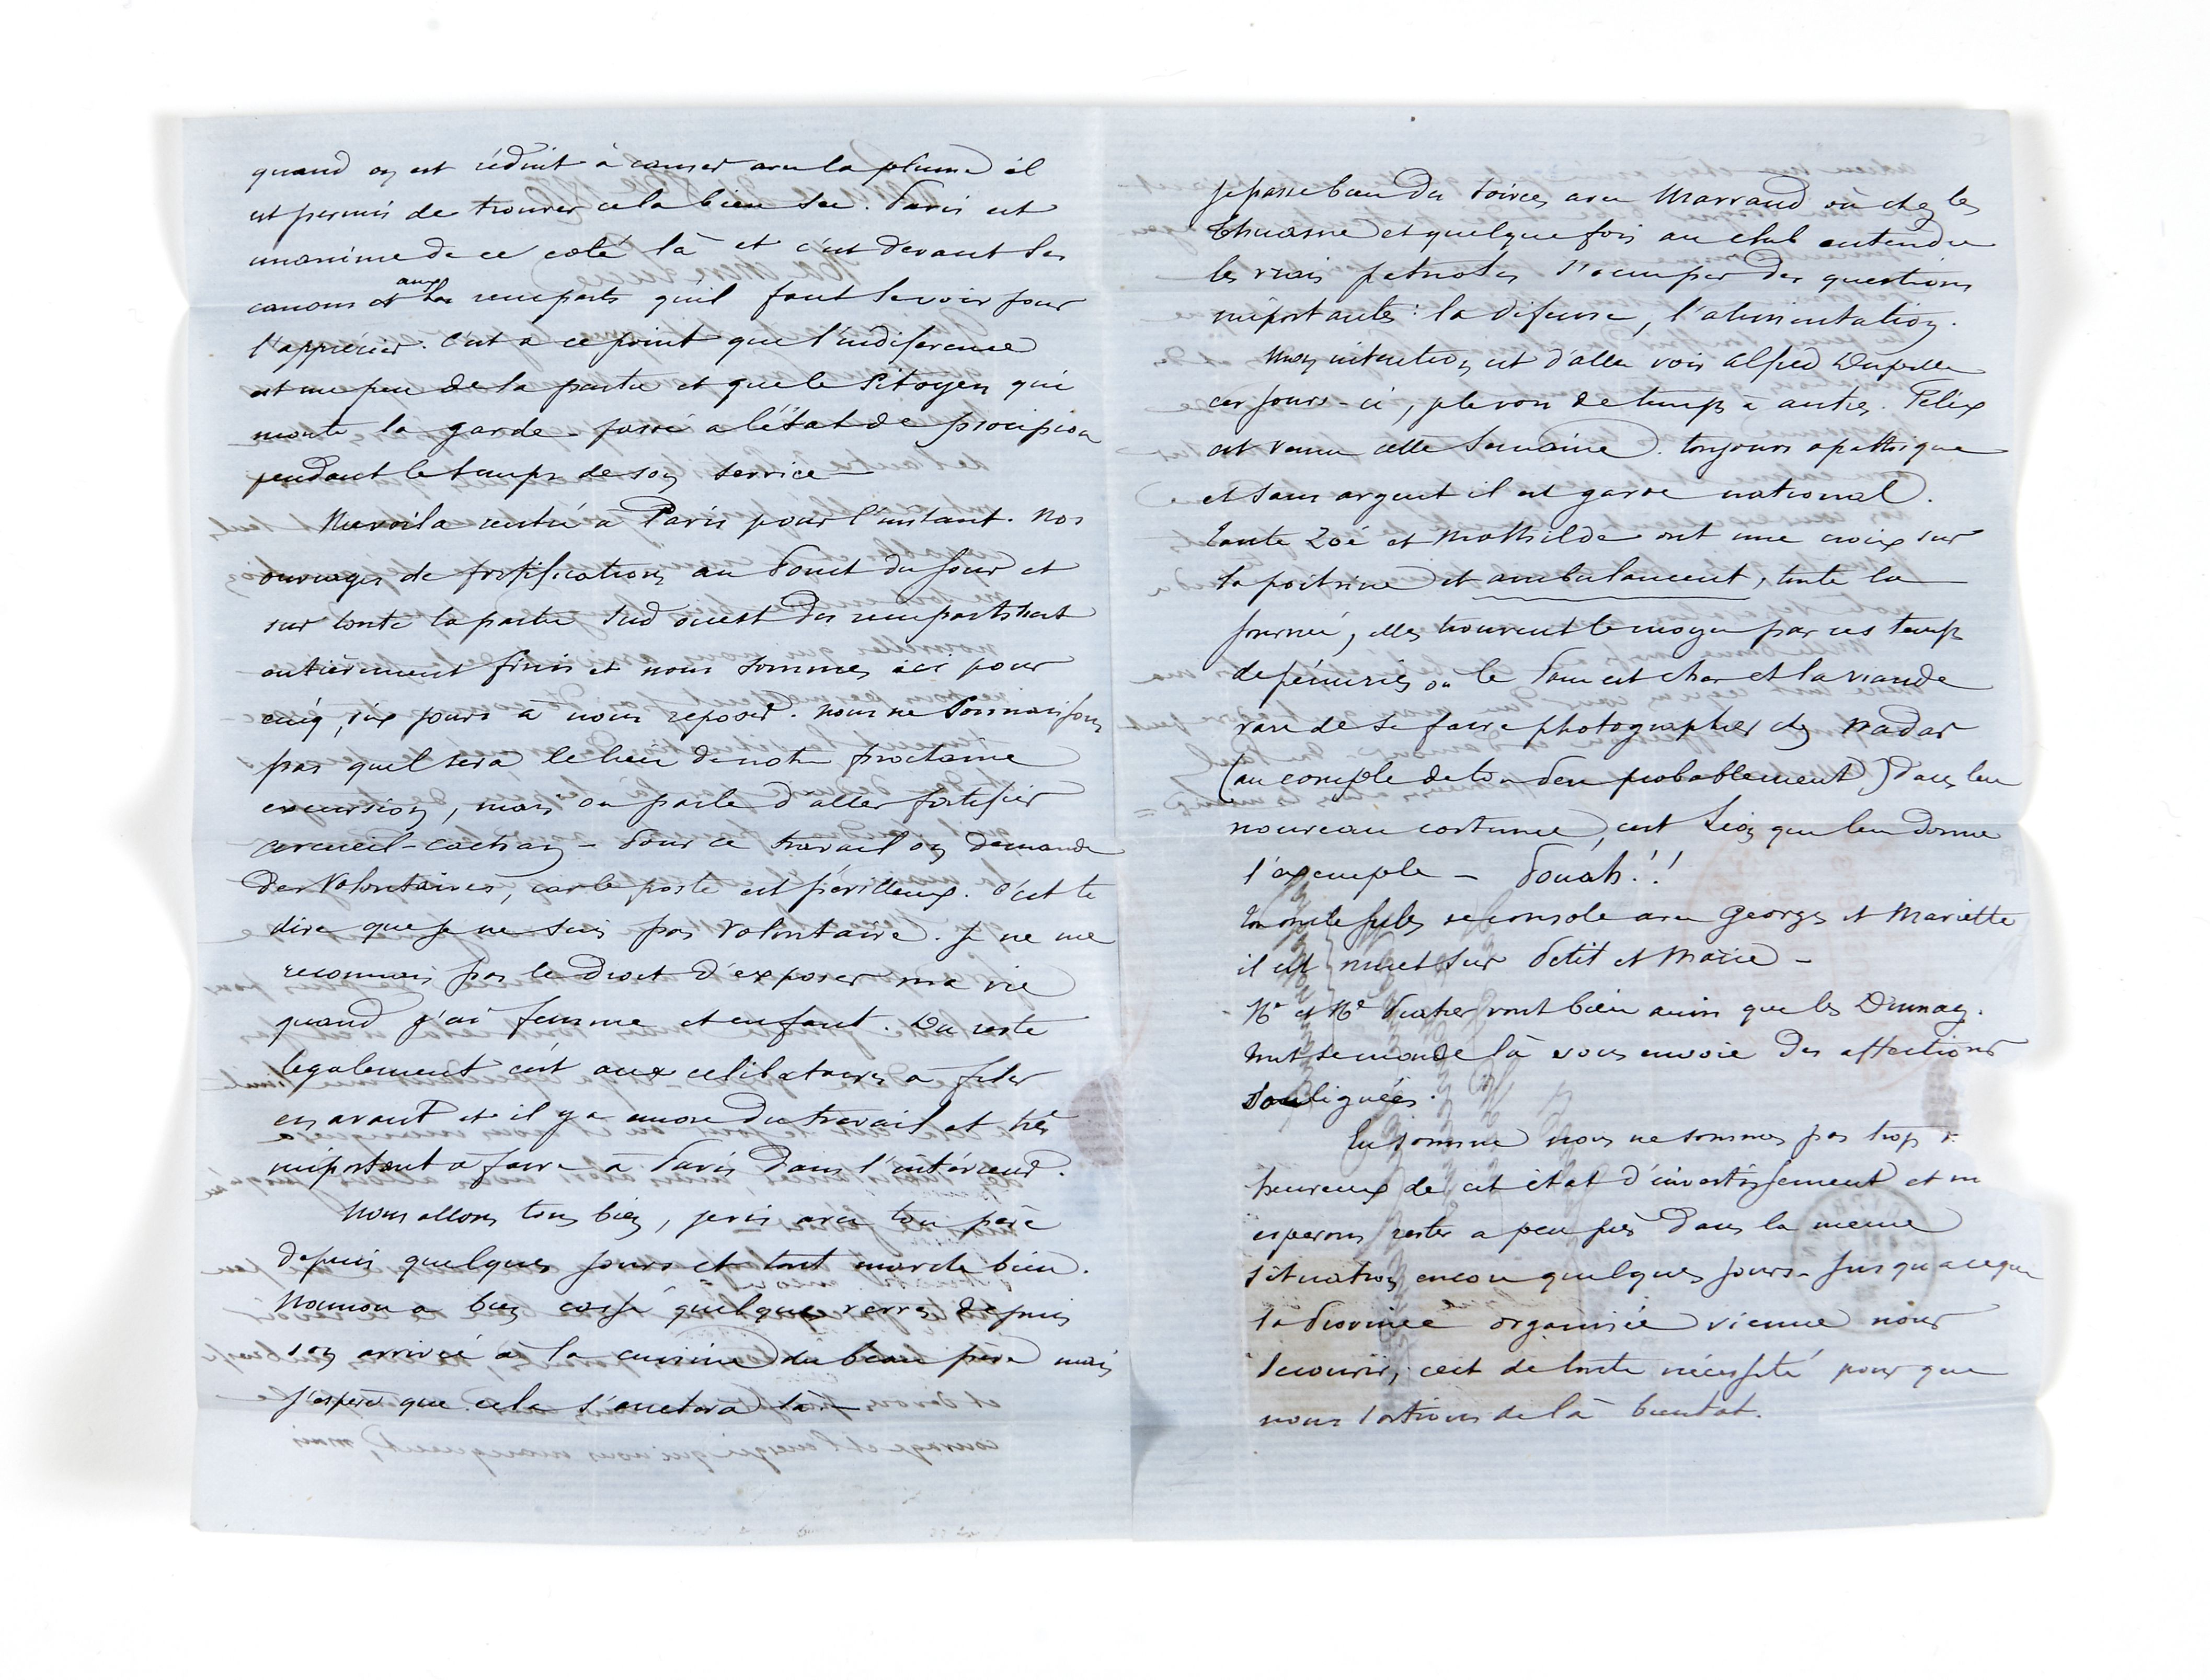 quand on est réduit à causer avec la plume il
est permis de trouver cela bien sec. Paris est
unanime de ce coté là et c'est devant les
canons et aux remparts qu'il faut le voir pour
l'apprécier. C'est a ce point que l'indiference
est un peu de la partie et que le citoyen qui
monte la garde - passe a l'état de
pendant le temps de son service -
Me voila rentré a Paris pour l'instant. Nos
ouvrages de fortifications au Point du jour et
sur toute la partie Sud ouest des remparts sont
entièrement finis et nous sommes ici pour
cinq, six jours à nous reposer. nous ne
pas quel sera le lieu de notre prochaine
excursion, mais on parle d'aller fortifier
arcueil-cachan - Pour ce travail on demande
des volontaires, car le poste est périlleux. C'est te
dire que je ne suis pas volontaire. Je ne me
reconnais pas le droit d'exposer ma vie
quand j'ai femme et enfant. Du reste
legalement c'est aux celibataires a filer
en avant et il y a encore du travail et très
important a faire à Paris dans l'intérieur.
Nous allons tous bien, je vis avec ton père
depuis quelques jours et tout marche bien.
Nounou a bien cassé quelques verres depuis
son arrivée à la cuisine du beau père mais
j'espère que cela s'arretera là -
Je passe bien des soirées avec Marraud où chez les
Thuasne et quelque fois au club entendre
les vrais patriotes s'occuper des questions
importantes : la défense, l'alimentation.
Mon intention est d'aller voir alfred
ces jours-ci, je le vois de temps a autres. Félix
est venu cette Semaine. toujours apathique
et sans argent il est garde national.
Tante Zoé et Mathilde ont une croix sur
la poitrine et ambulancent, toute la
journée, elles trouvent le moyen par ces temps
de pénuries où le Pain est cher et la viande
rare de se faire photographier chez Nadar
(au compte de ton Père probablement) dans leur
nouveau costume, c'est Léon qui leur donne
l'exemple - Pouah!!
Ton oncle Jules se console avec Georges et Mariette
il est muet sur Petit et Marie -
Mr et Me vont bien ainsi que les
tout ce monde là vous envoie des affections
soulignées.
En somme nous ne sommes pas trop
heureux de cet état d'investissement et
esperons rester a peu près dans la meme
situation encore quelques jours - Jusqu'a ce que
la Province organisée vienne nous
secourir, c'est de toute nécessité pour que
nous sortions de là bientot.